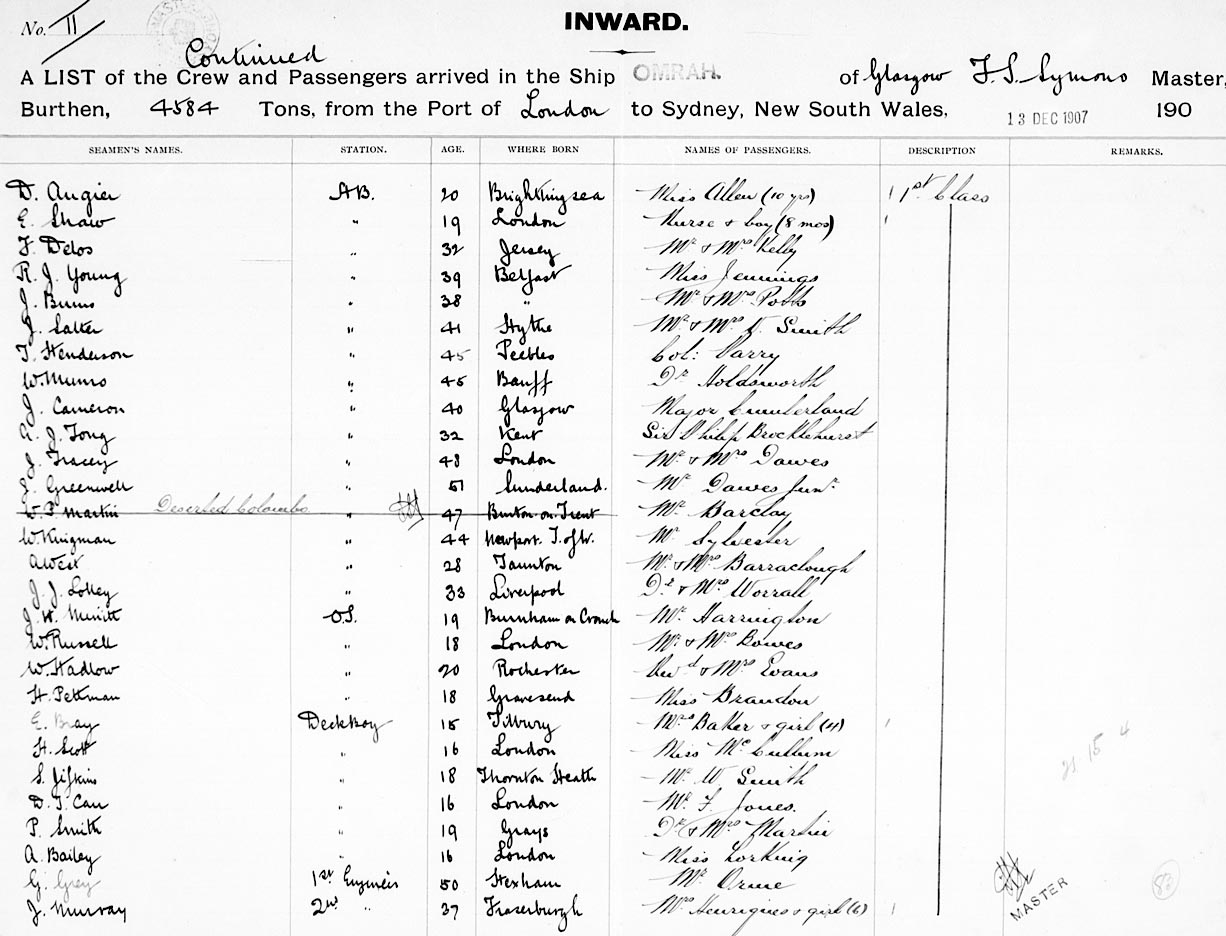 No. II
INWARD.
Continued
A LIST of the Crew and Passengers arrived in the Ship OMRAH. of Glasgow F. S. Symons Master,
Burthen, 4584 Tons, from the Port of London to Sydney, New South Wales, 13 DEC 1907 190
SEAMEN'S NAMES. STATION. AGE. WHERE BORN NAMES OF PASSENGERS. DESCRIPTION REMARKS.
D. Angier AB. 20 Brightlingsea Miss Allen (10 yrs) 1 1st Class
E. Shaw " 19 London Nurse & boy (8 mos) 1
F. Delos " 32 Jersey Mr & Mrs Kelly
R. J. Young " 39 Belfast Miss Jennings
J. Burns " 38 " Mr & Mrs Potts
J. Salter " 41 Hythe Mr & Mrs V. Smith
T. Henderson " 45 Peebles Col: Parry
W. Munro " 45 Banff Dr Holdsworth
J. Cameron " 40 Glasgow Major Cumberland
J. Tong " 32 Kent Sir Philip Brocklehurst
J. Tracey " 48 London Mr & Mrs Dawes
J. Greenwell " 51 Sunderland. Mr Dawes Junr
W. P. Martin Deserted Colombo " 47 Burton-on-Trent Mr Barclay
W. Kingman " 44 Newport. I. of W. Mr Sylvester
A West " 28 Taunton Mr & Mrs Barraclough
J. J. Lolley " 33 Liverpool Dr & Mrs Worrall
J. W. Minitt OS. 19 Burnham on Crouch Mr Harrington
W. Russell " 18 London Mr & Mrs Bowes
W. Hadlow " 20 Rochester Revd & Mrs Evans
H. Pettman " 18 Gravesend Miss Brandon
E. Bray Deck Boy 15 Tilbury Mrs Baker & girl (4) 1
H. Scott " 16 London Miss McCullum
S. Jifkins " 18 Thornton Heath Mr W Smith
D. T. Carr " 16 London Mr F. Jones.
P. Smith " 19 Grays Dr & Mrs Martin
A. Bailey " 16 London Miss Lorking
G. Grey 1st Engineer 50 Hexham Mr Orme
J. Murray 2nd " 37 Fraserburgh Mrs Henriques & girl (6) 1
MASTER